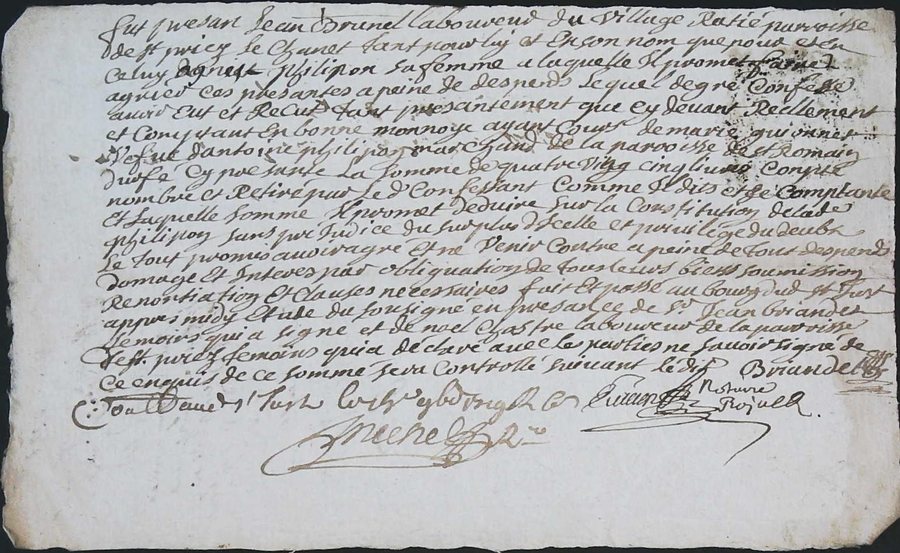 fut presan Jean Brunel laboureur du Village Ratié parroisse
de st priez le Chanet tant pour luy et En son nom que pour et en
Celuy dagnest philipon sa femme a laquelle Il promet faire
agrier Ces presantes a peine de despends Lequel de gre Confesse
avoir Eut et Recut tant presantement que Cy devant Reallement
et Comptant En bonne monnoye ayant Cours de marie
Vefue dantoine philipon marchand de la parroisse de st Romain
durfé Cy presante La somme de quatre Vingt Cinq livres Compté
nombré et Retiré par led Confessant Comme Il dis et se Comptante
et Laquelle somme Il promet deduire sur la Constitution de lade
philipon sans preJudice du surplus dIcelle et privilege du deubt
Le tout promis avoir agre et ne Venir Contre a peine de tout despends
domage Et Interes par obliguation de tous leurs biens soumission
Renontiation Et Clauses necessaires fait Et passé au bourg dud st Just
appres midy Etude du sousigné en presance de sr Jean briandet
temoins qui a signé et de noel Chastre laboureur de la parroisse
dest priez temoins qui a declaré avec les parties ne savoir signe de
Ce enquis de Ce somme sera Controllé suivant le dit Briandet
st Just Notaire
Royal